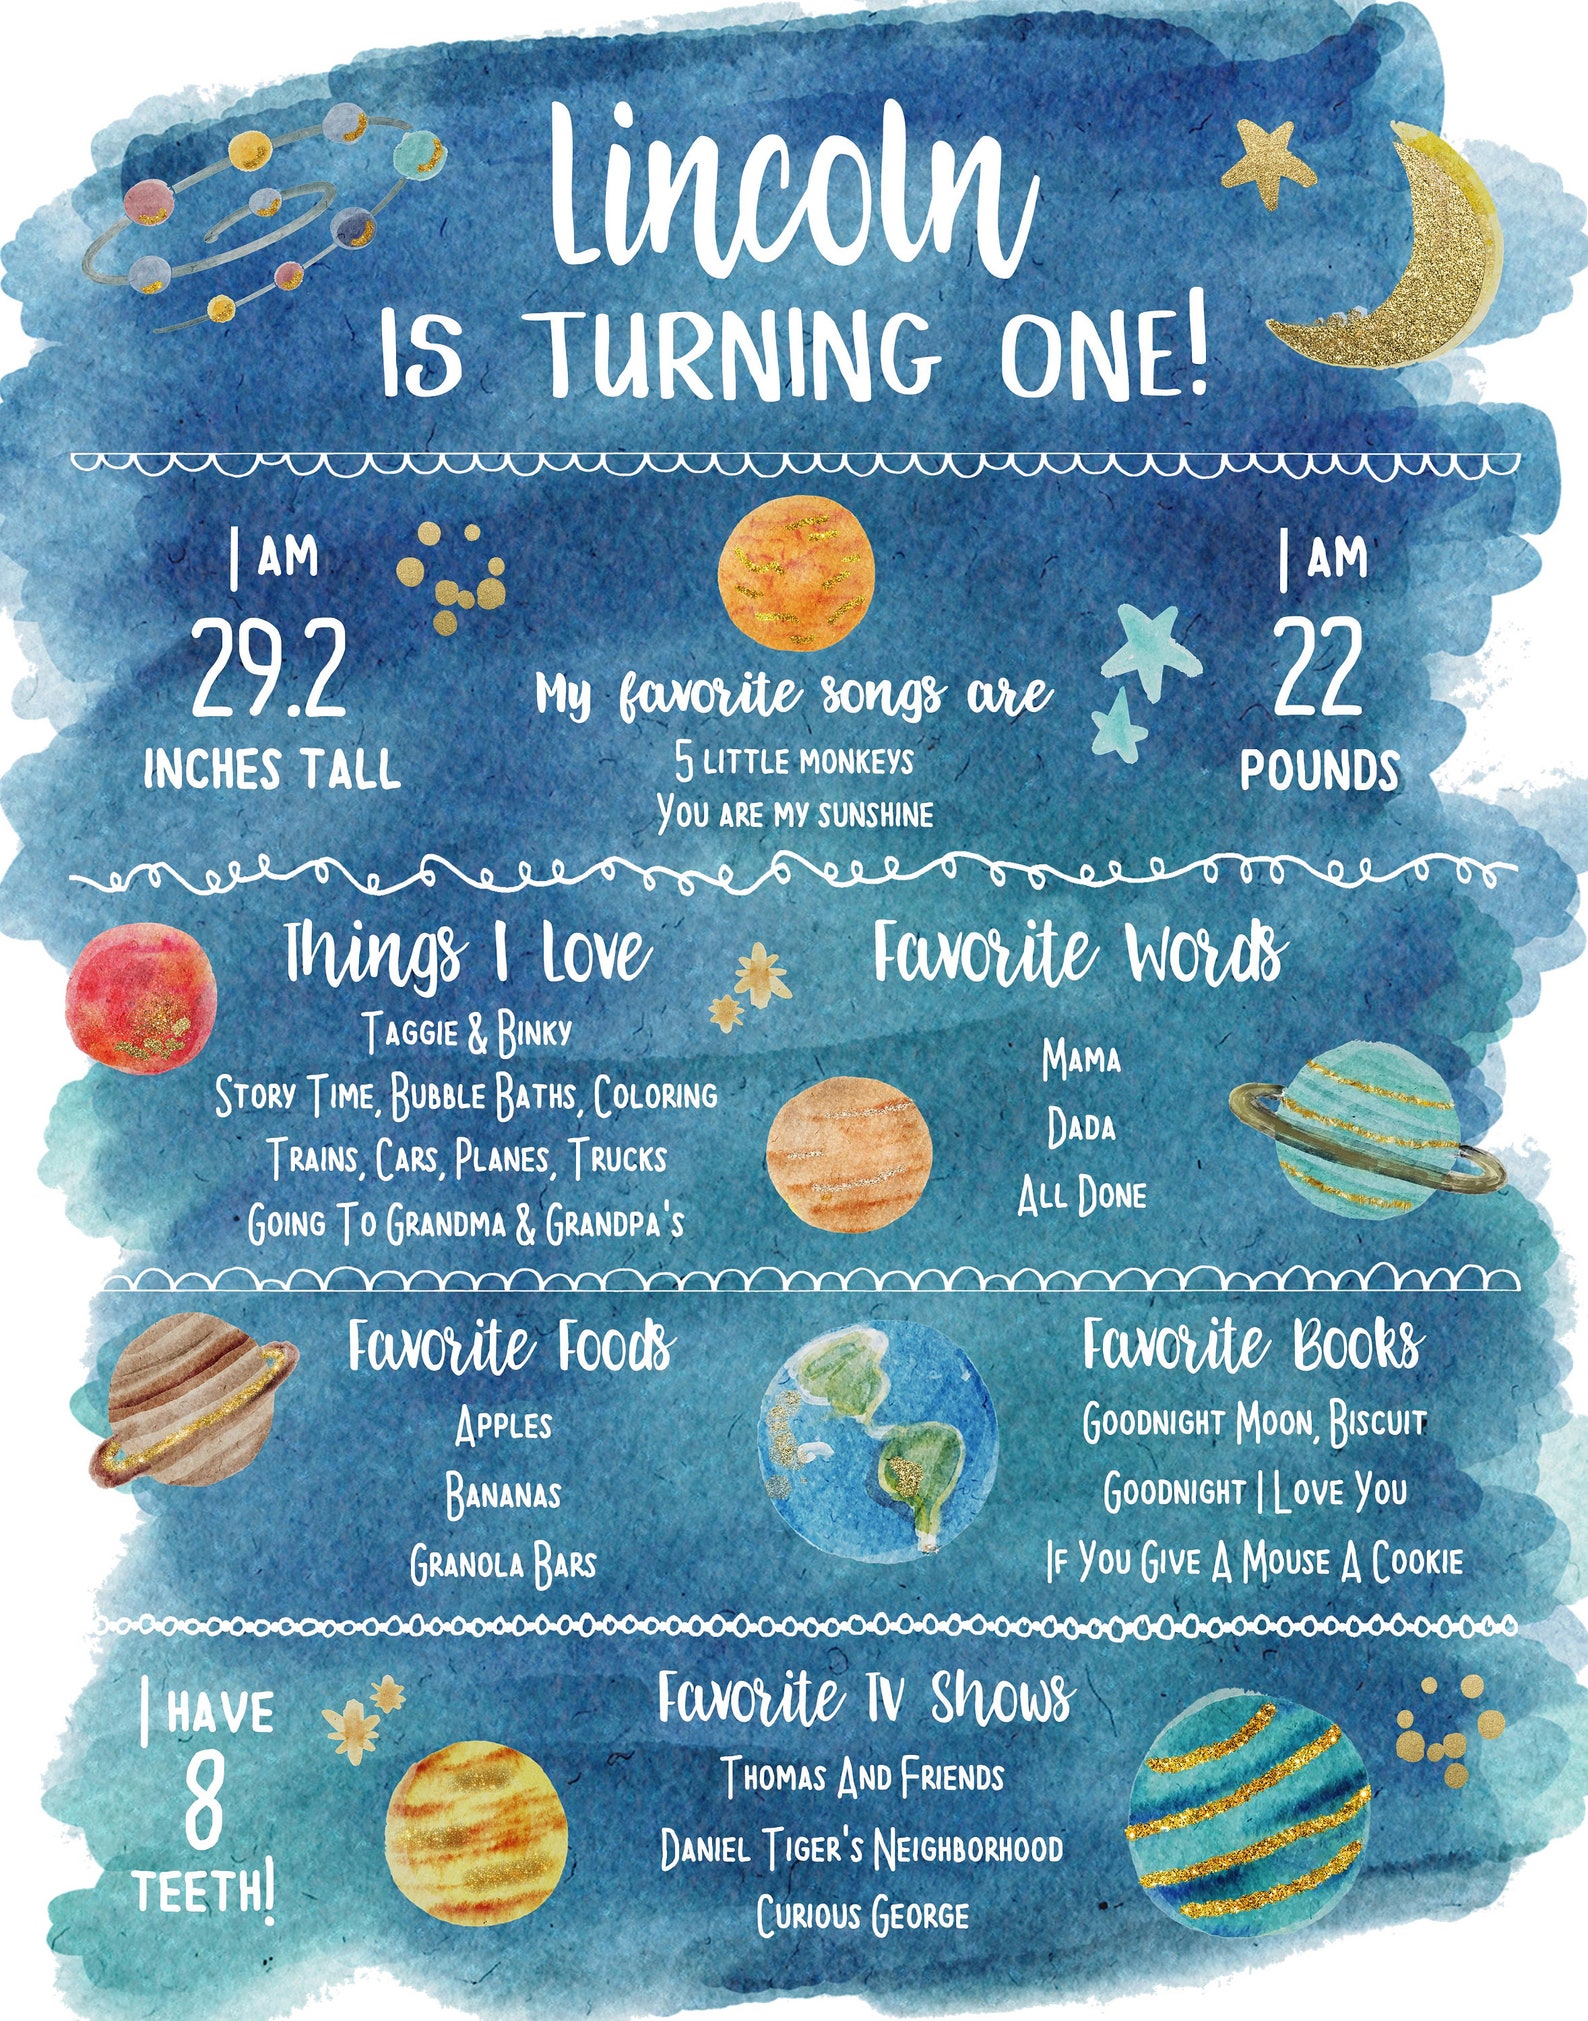 Lincoln
IS TURNING ONE!
I AM
29.2
INCHES TALL
My favorite songs are
5 LITTLE MONKEYS
YOU ARE MY SUNSHINE
I AM
22
POUNDS
Things I Love
TAGGIE & BINKY
STORY TIME, BUBBLE BATHS, COLORING
TRAINS, CARS, PLANES, TRUCKS
GOING TO GRANDMA & GRANDPA'S
Favorite Words
MAMA
DADA
ALL DONE
Favorite Foods
APPLES
BANANAS
GRANOLA BARS
Favorite Books
GOODNIGHT MOON, BISCUIT
GOODNIGHT I LOVE YOU
IF YOU GIVE A MOUSE A COOKIE
I HAVE
8
TEETH!
Favorite TV Shows
THOMAS AND FRIENDS
DANIEL TIGER'S NEIGHBORHOOD
CURIOUS GEORGE